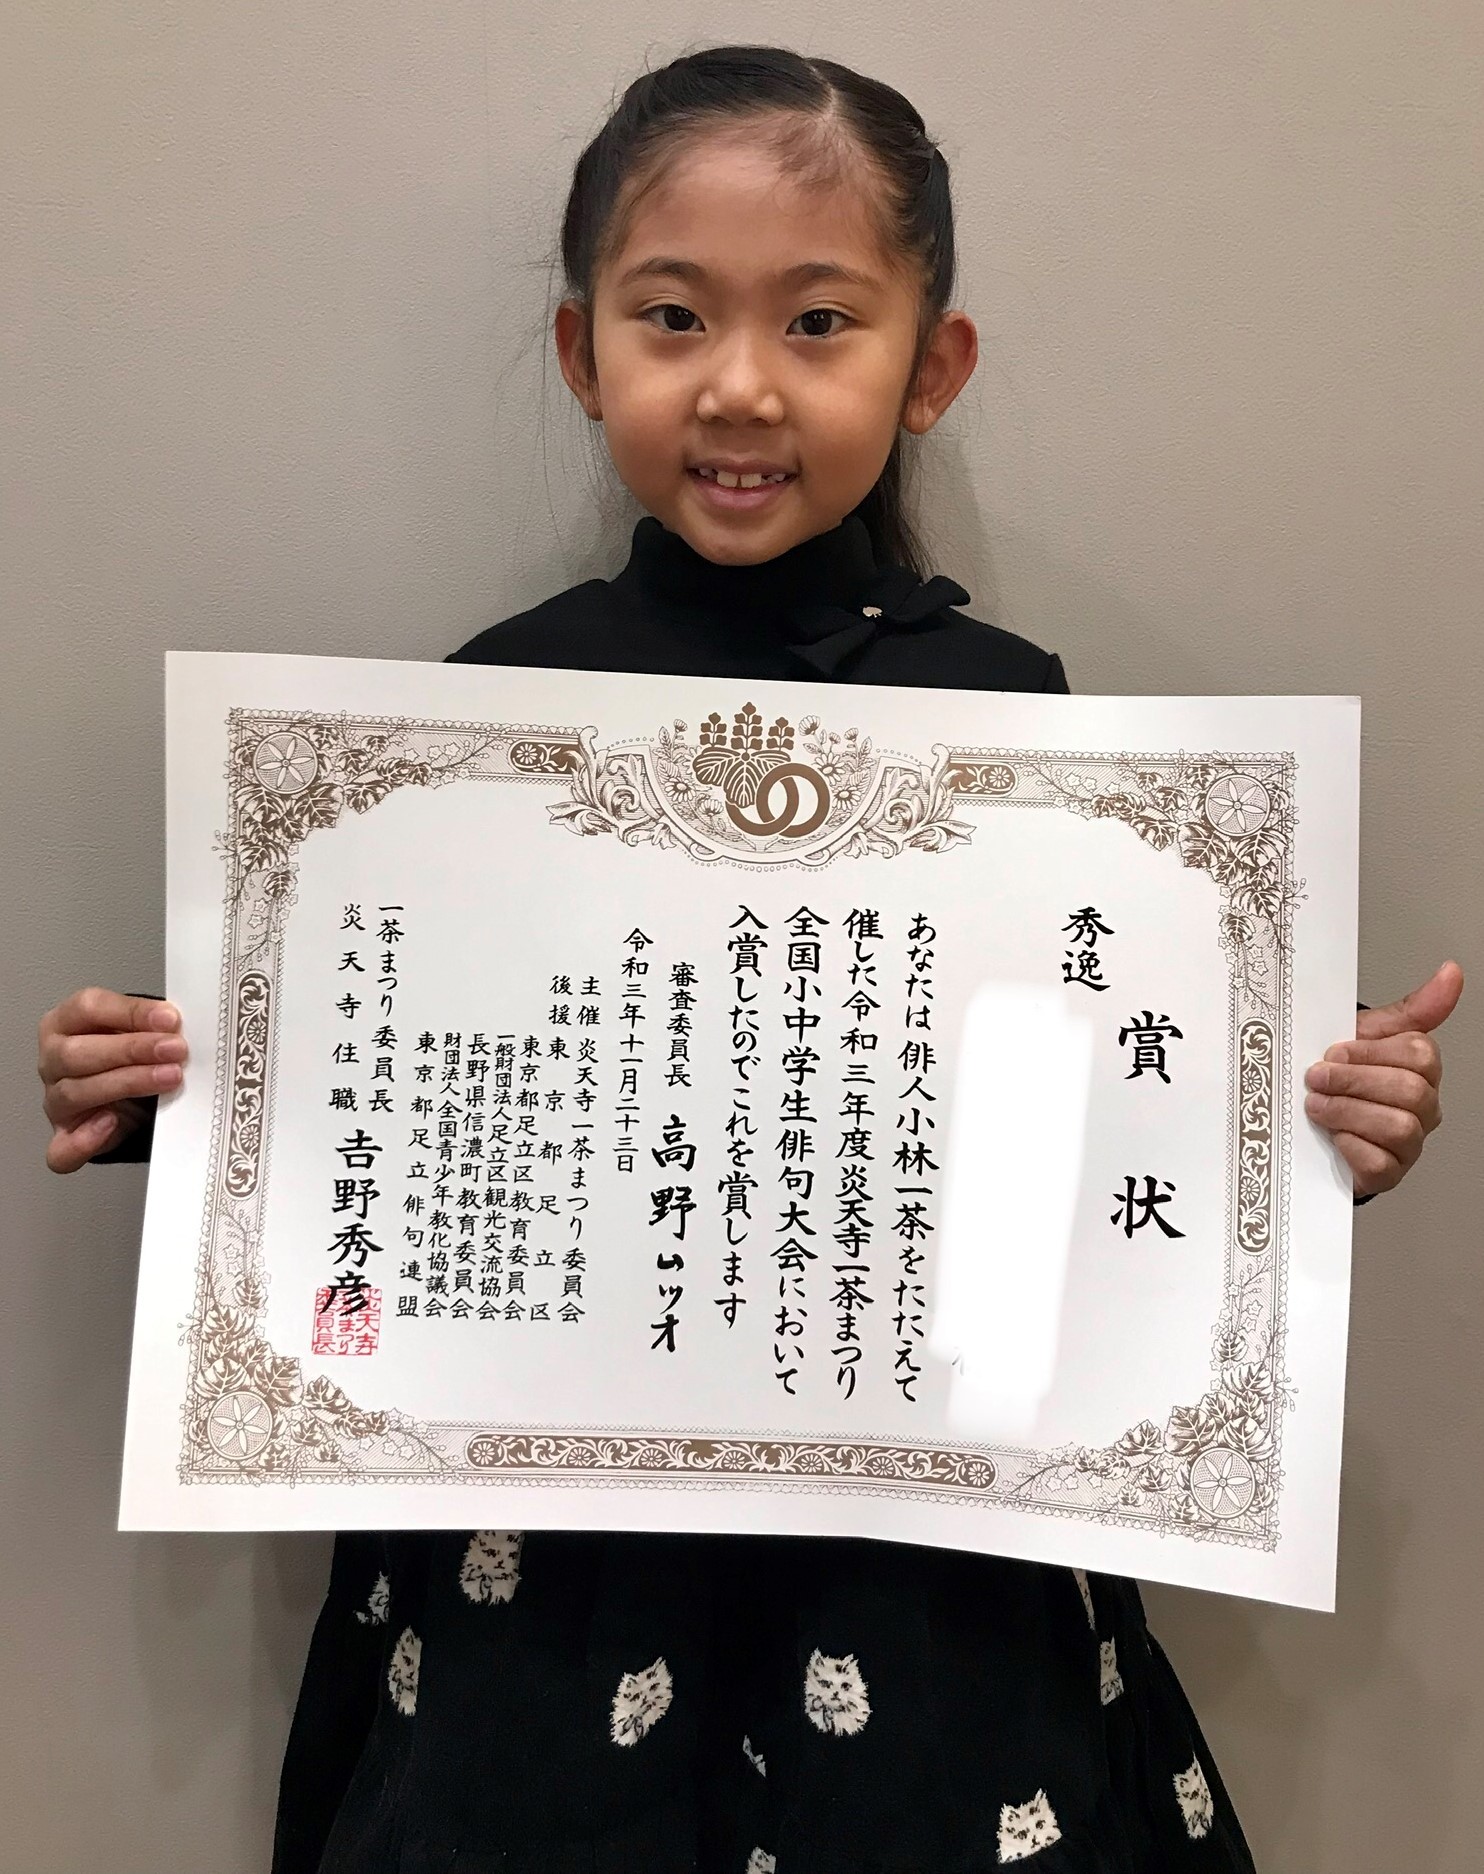 賞状
秀逸
あなたは俳人小林一茶をたたえて
催した令和三年度炎天寺一茶まつり
全国小中学生俳句大会において
入賞したのでこれを賞します
審査委員長 高野ムツオ
令和三年十一月二十三日
主催 炎天寺一茶まつり委員会
後援 東京都足立区
東京都足立区教育委員会
一般財団法人足立区観光交流協会
長野県信濃町教育委員会
財団法人全国青少年教化協議会
東京都足立俳句連盟
一茶まつり委員長
炎天寺住職 吉野秀彦
炎天寺
一茶まつり
委員長